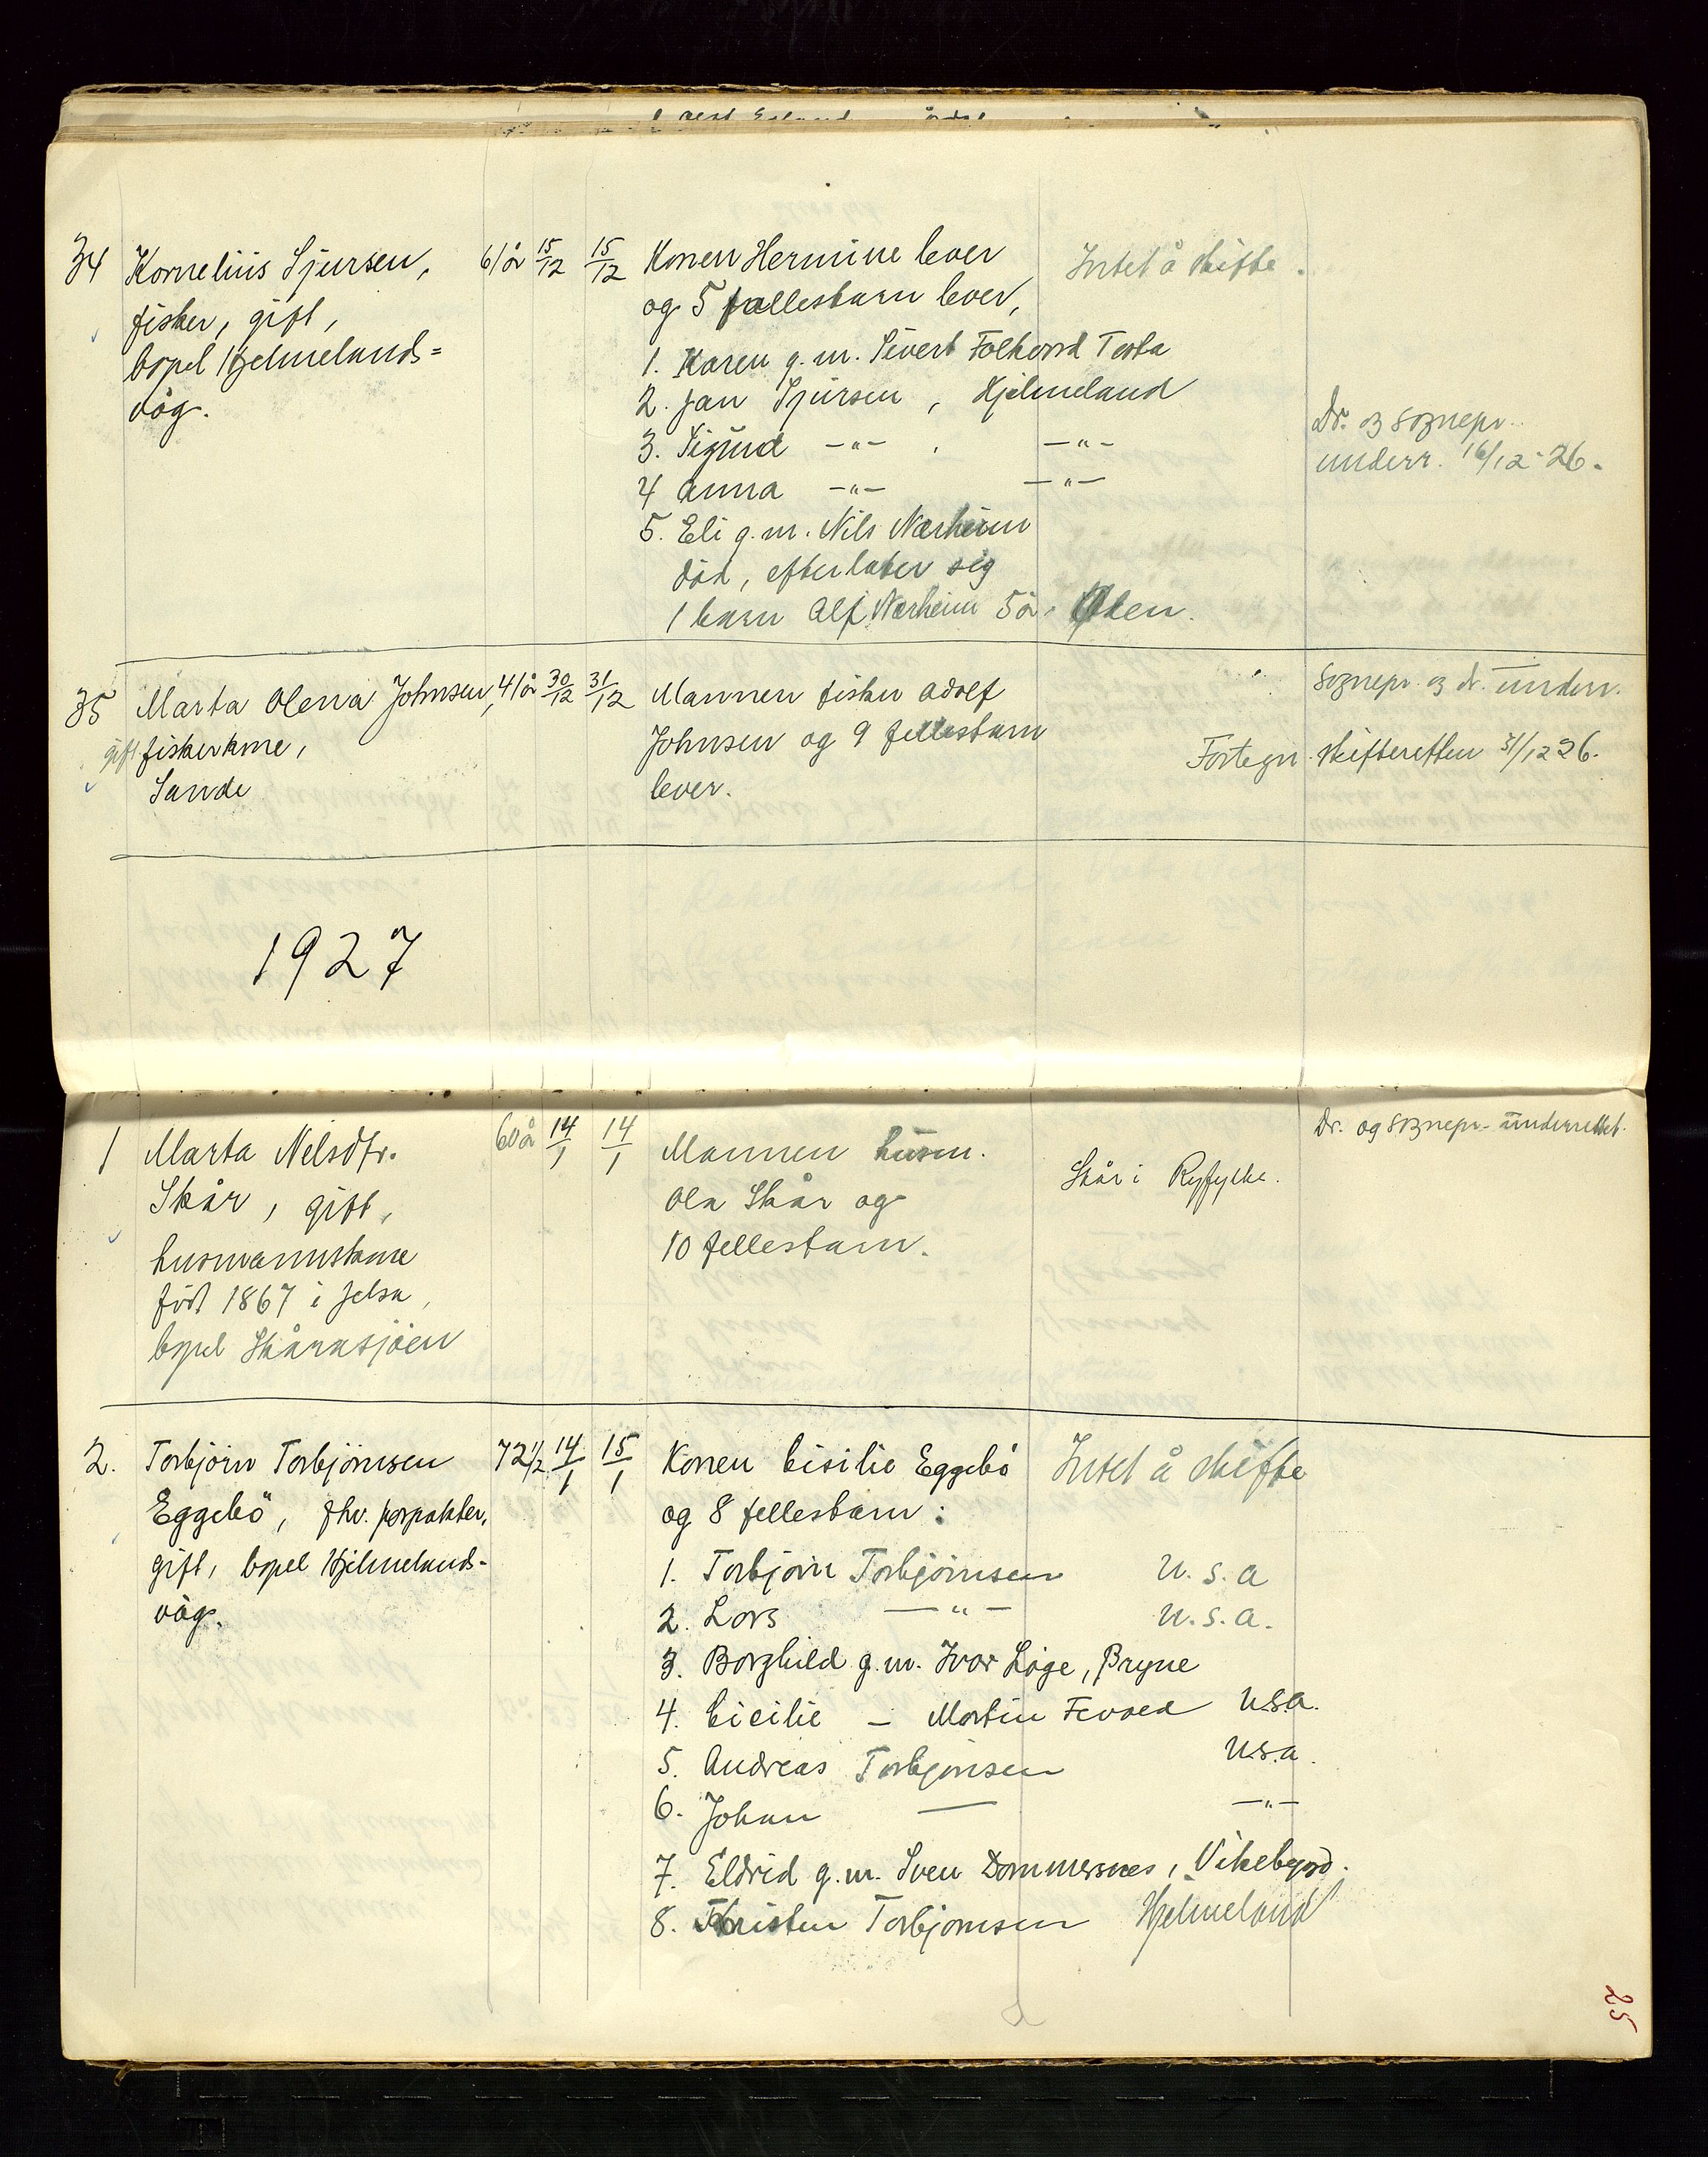 34 Kornelius Sjursen, 61 år 15/12 15/12 Konen Hermine lever Intet å skifte.
fisker, gift, og 5 fellesbarn lever,
bopel Hjelmelands= 1. Karen g.m. Sivert Folkvord Testa
våg. 2. Jan Sjursen, Hjelmeland Dr. og sognepr.
3. Sigurd -"- , -"- underr. 16/12-26.
4 Anna -"- -"-
5. Eli g.m. Nils Nærheim
död, efterlater sig
1 barn Alf Nærheim 5 år.
35 Marta Olena Johnsen, 41 år 30/12 31/12 Mannen fisker Adolf Sognepr. og dr. underr.
gift fiskerkone, Johnsen og 9 fellesbarn Fortegn. skifteretten 31/12 26.
Sande lever.
1927
1 Marta Nelsdtr. 60 år 14/1 14/1 Mannen husm. Skår i Ryfylke. Dr. og sognepr. underrettet.
Skår, gift, Ola Skår og
husmannskone 10 fellesbarn.
född 1867 i Jelsa,
bopel Skårasjöen
2. Torbjörn Torbjörnsen 72 1/2 14/1 15/1 Konen Cisilie Eggebö Intet å skifte
Eggebö, fhv. postpakter, og 8 fellesbarn:
gift, bopel Hjelmelands- 1. Torbjörn Torbjörnsen U.S.A
våg. 2. Lars -"- U.S.A.
3. Borghild g.m. Ivar Löge, Bryne
4. Cicilie - Martin U.S.A.
5. Andreas Torbjörnsen U.S.A.
6. Johan — -"-
7. Eldrid g.m. Sven Dommersnes, Vikebygd.
8. Kristen Torbjörnsen Hjelmeland
25